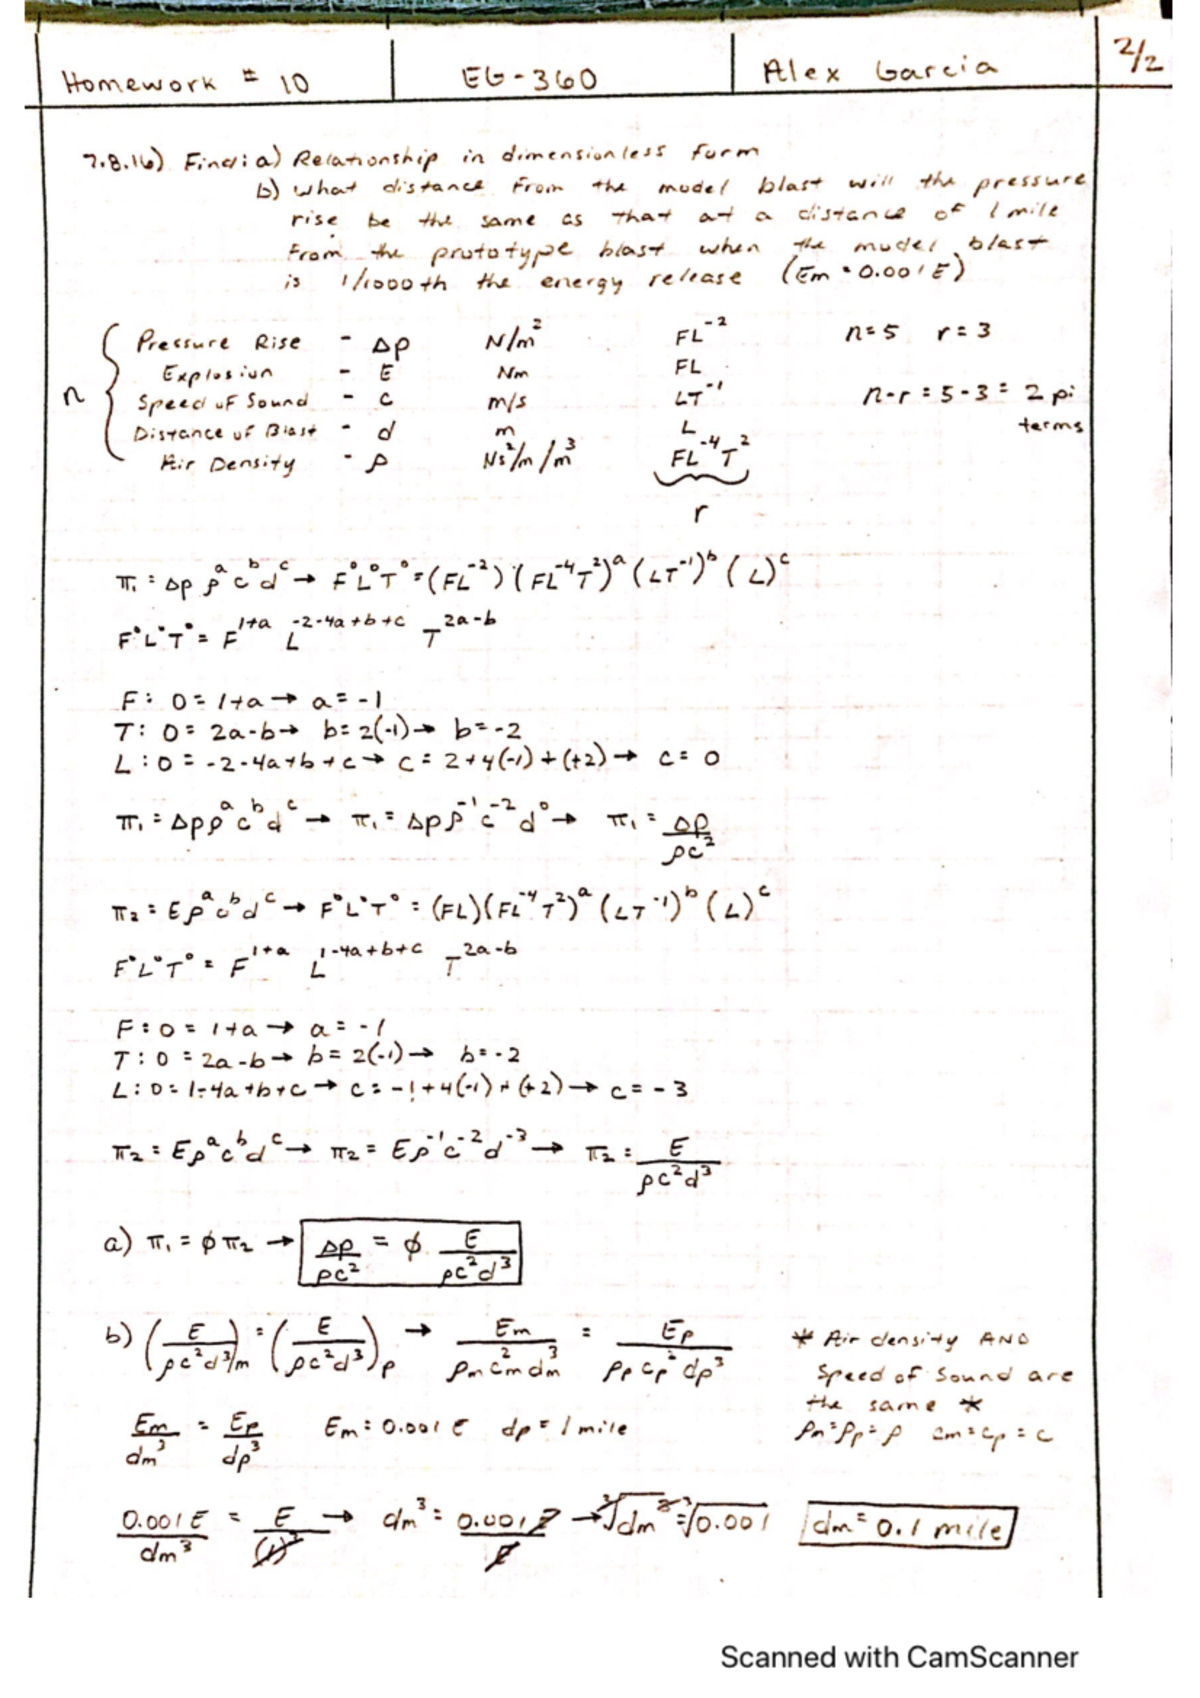 Homework # 10 EG-360 Alex Garcia 2/2
7.8.16) Find: a) Relationship in dimensionless form
b) what distance from the model blast will the pressure
rise be the same as that at a distance of 1 mile
from the prototype blast when the model blast
is 1/1000th the energy release (Em = 0.001E)
n { Pressure Rise - Δp N/m² FL⁻² n=5 r=3
Explosion - E Nm FL
Speed of Sound - c m/s LT⁻¹ n-r = 5-3 = 2 pi
Distance of Blast - d m L terms
Air Density - ρ Ns²/m/m³ FL⁻⁴T²
r
π₁ = Δp ρᵃcᵇdᶜ → F⁰L⁰T⁰ = (FL⁻²)(FL⁻⁴T²)ᵃ(LT⁻¹)ᵇ(L)ᶜ
F⁰L⁰T⁰ = F^1+a L^-2-4a+b+c T^2a-b
F: 0 = 1+a → a = -1
T: 0 = 2a-b → b = 2(-1) → b = -2
L: 0 = -2-4a+b+c → c = 2+4(-1)+(+2) → c = 0
π₁ = Δpρᵃcᵇdᶜ → π₁ = Δpρ⁻¹c⁻²d⁰ → π₁ = Δp/ρc²
π₂ = Eρᵃcᵇdᶜ → F⁰L⁰T⁰ = (FL)(FL⁻⁴T²)ᵃ(LT⁻¹)ᵇ(L)ᶜ
F⁰L⁰T⁰ = F^1+a L^1-4a+b+c T^2a-b
F: 0 = 1+a → a = -1
T: 0 = 2a-b → b = 2(-1) → b = -2
L: 0 = 1-4a+b+c → c = -1+4(-1)+(+2) → c = -3
π₂ = Eρᵃcᵇdᶜ → π₂ = Eρ⁻¹c⁻²d⁻³ → π₂ = E/ρc²d³
a) π₁ = φπ₂ → Δp/ρc² = φ E/ρc²d³
b) (E/ρc²d³)m = (E/ρc²d³)p → Em/ρm cm² dm³ = Ep/ρp cp² dp³ * Air density AND
Speed of Sound are
the same *
Em/dm³ = Ep/dp³ Em = 0.001 E dp = 1 mile ρm=ρp=ρ cm=cp=c
0.001E/dm³ = E/(1)³ → dm³ = 0.001E/E → ³√dm³ = ³√0.001 dm = 0.1 mile
Scanned with CamScanner